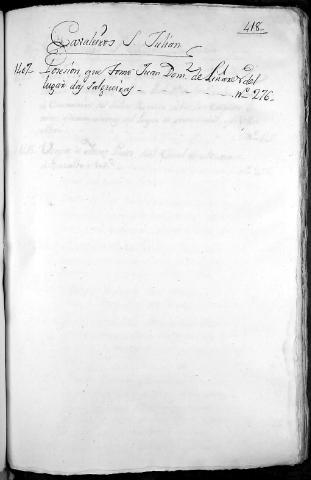 418
Cavaleiros S. Julian
1407. Posesion que tomo Juan Dom.z de Liñares del
lugar das salgueiras N.o 276